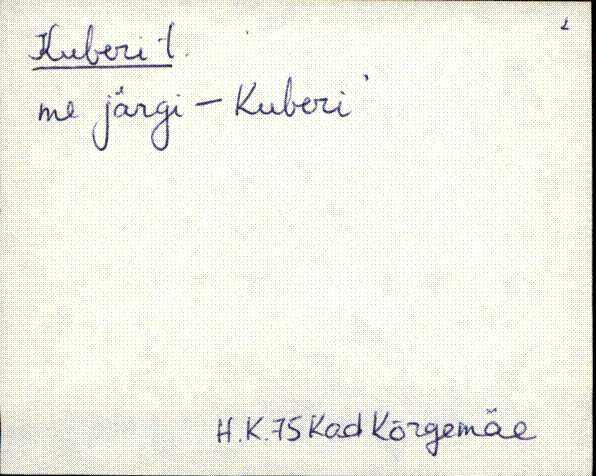 Kuberi t.
me järgi - Kuberi
H.K. 75 Kad Kõrgemäe